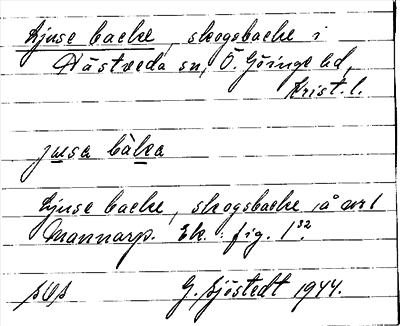 Ljuse backe, skogsbacke i
Nästveda sn, Ö. Göinge hd,
Krist. l.
jusa båka
Ljuse backe, skogsbacke å nr 1
Mannarp. Ek. fig. 1³².
G. Sjöstedt 1944.